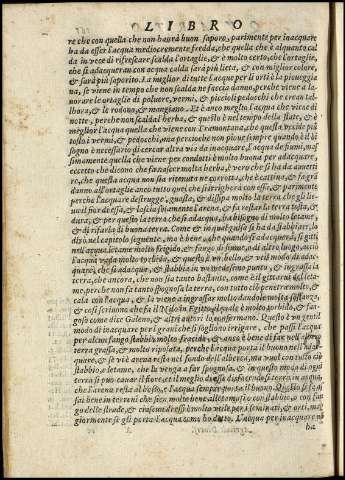 LIBRO
re che con quella che non haurà buon sapore, parimente per inacquare
ba da esser l'acqua mediocremente fredda, che quella che è alquanto cal
da in vece di rifrescare scalda l'ortaglie, & è molto certo, che l'ortaglie,
che si adacqueran con acqua calda sarà più liete, & con miglior colore,
& sarà più saporito. La miglior di tutte l'acque per li orti è la pioueggia
na, se viene in tempo che non scalda ne faccia danno, perche viene a la-
uorare le ortaglie di poluere, vermi, & piccioli pedocchi che cran tal-
lhora, & le rodono, & mangiano. Et è anco meglio l'acqua che viene di
notte, perche non scalda l'herba, & questo è nel tempo della state, & è
miglior l'acqua quella che viene con Tramontana, che questa vccide più
tosto i vermi, & pedocchi, ma perche non pioue sempre quando è di bi
sogno è necessario di cercar altra via da inacquare, l'acqua de fiumi, mas
simamente quella che viene per condutti è molto buona per adacquare,
eccetto che dicono che fa nascer molta herba, è vero che si ha da auerti
re, che questa acqua non sia ritenuta ne corrotta, che è cattiua, & farà
danno all'ortaglie
perche l'acquare destrugge, guasta, & dissipa molto la terra che gli lie
ua il fior di essa, & lascia solamente l'arena, & fa restar la terra tosta, &
dura, & per questo la terra che si adacqua, ha bisogno di molto letame,
& di rifarla di buona terra. Come
diro nel capitolo seguente, ma è bene, che quando si adacqua, si
nell'acqua letame molto fracido, & fango di fiume, o di altro luogo, acciò
l'acqua vada molto torbida, & questo è vn bello, & vtil modo di ada-
quare, che si adacqua, & stabbia in vn medesimo punto, & ingrassa la
terra, che ancora, che non sia tanto bastante, come è il gittar del leta-
me, perche non fa tanto spognosa la terra, con tutto ciò penetra molto, &
cala con l'acqua, & la viene a ingrassar molto dandole molta sostanza,
& così scriuono che fa il Nilo in Egitto, il quale è molto torbido, & fan-
goso come dice Galeno, & altri autori lo affermano. Questo è vn gentil
modo di inacquare per li grani che si fogliono irrigare, che passi l'acqua
per alcun fango stabbio molto fracido, & anco è bene di far nell'acqua
terra grassa, & molto riposata, perche l'acqua porta il buono nell'ada-
quare, & se vi è anco resta nel fondo dell'albero, ma vuol con tutto ciò
stabbio, o letame, che la venga a far spognosa, & in questo modo di ogni
terra si può cauar il fiore, & il meglio di essa
che l'arena resta al basso, & l'acqua sempre porta il buono.
fai bene in terreni che sien molto bene alletamati o con stabbio, o con fan
go delle strade, & ciascun di essi è molto vtile per i seminati, & orti, mag
giormente se gli porta l'acqua come ho detto. L'acqua per inacquare no
ha